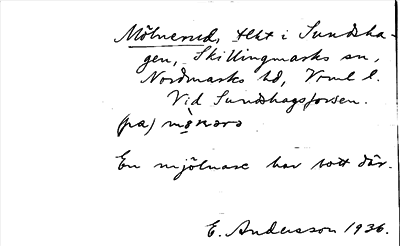 Mölnerud, tkt i Sundsha-
gen, Skillingmarks sn,
Nordmarks hd, Vrml l.
Vid Sundhagsforsen.
(pa)
En mjölnare har bott där.
E. Andersson 1936.